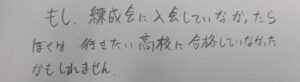 もし、練成会に入会していなかったら
ぼくは 行きたい高校に合格していなかった
かもしれません。